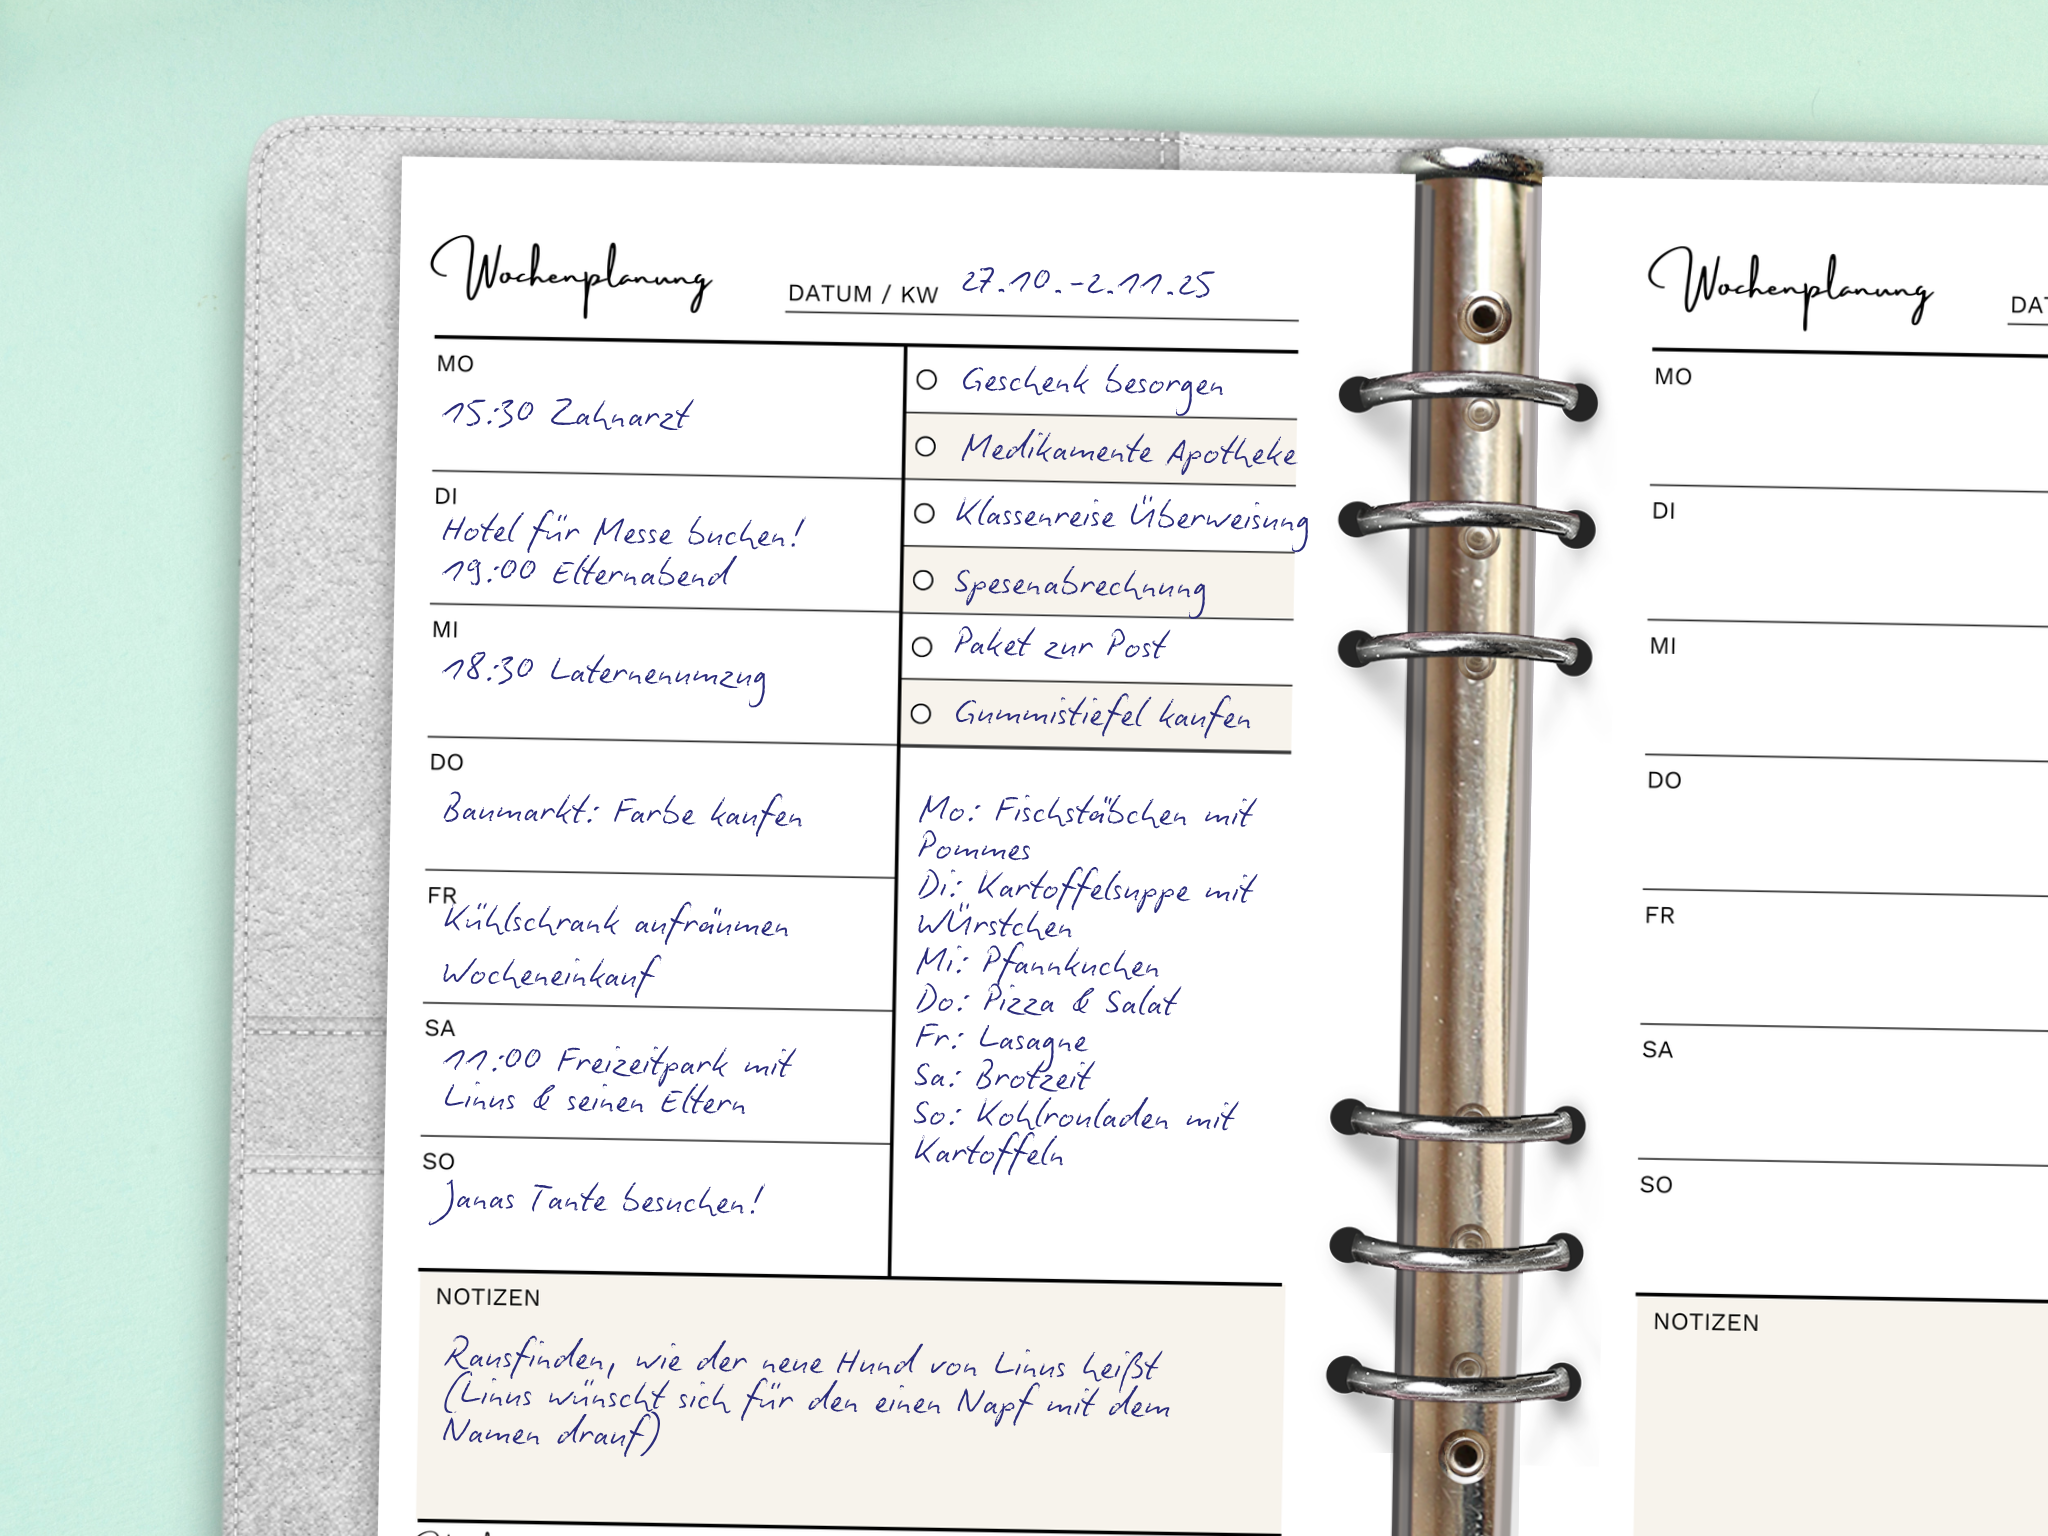 Wochenplanung
DATUM / KW 27.10.-2.11.25
MO
15:30 Zahnarzt
DI
Hotel für Messe buchen!
19:00 Elternabend
MI
18:30 Laternenumzug
DO
Baumarkt: Farbe kaufen
FR
Kühlschrank aufräumen
Wocheneinkauf
SA
11:00 Freizeitpark mit
Linus & seinen Eltern
SO
Janas Tante besuchen!
Geschenk besorgen
Medikamente Apotheke
Klassenreise Überweisung
Spesenabrechnung
Paket zur Post
Gummistiefel kaufen
Mo: Fischstäbchen mit
Pommes
Di: Kartoffelsuppe mit
WÜrstchen
Mi: Pfannkuchen
Do: Pizza & Salat
Fr: Lasagne
Sa: Brotzeit
So: Kohlrouladen mit
Kartoffeln
NOTIZEN
Rausfinden, wie der neue Hund von Linus heißt
(Linus wünscht sich für den einen Napf mit dem
Namen drauf)
Wochenplanung
MO
DI
MI
DO
FR
SA
SO
NOTIZEN